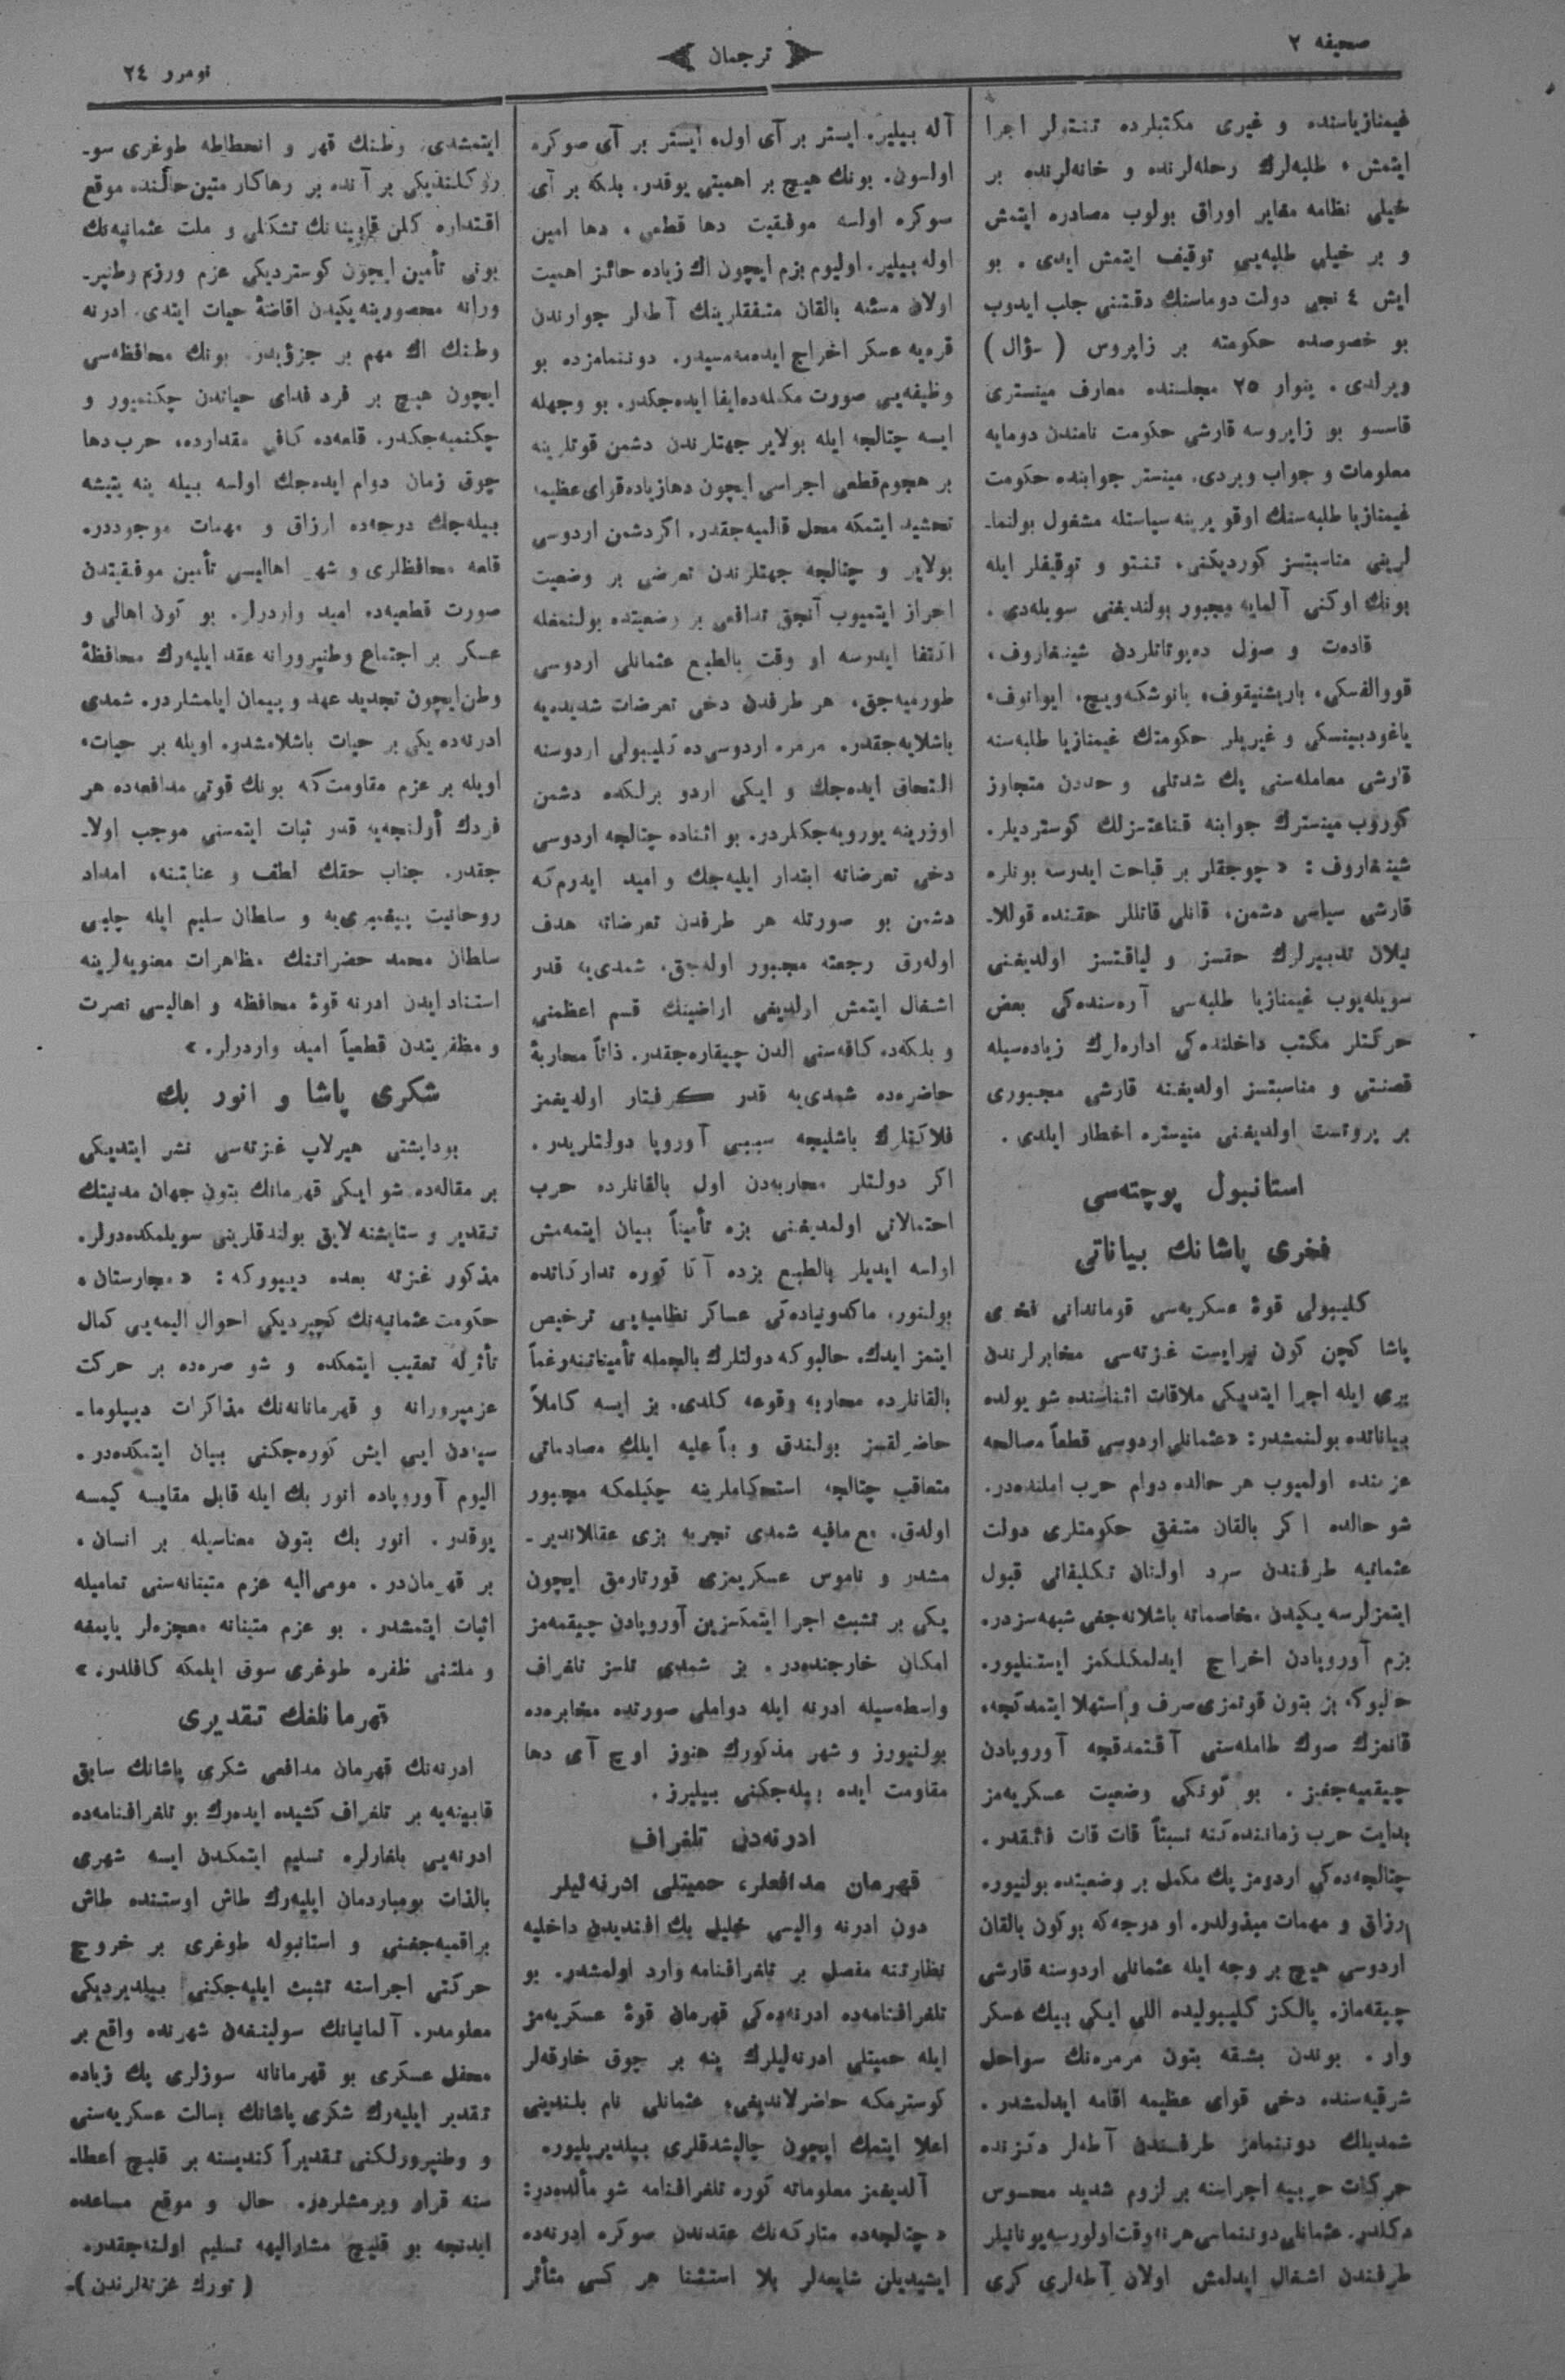 صحیفه ٢
ترجمان
نومرو ٢٤
غیمنازیاسنده و غیری مکتبلرده تنتولر اجرا
ایتمش، طلبه‌لرك رحله‌لرنده و خانه‌لرنده بر
خیلی نظامه مغایر اوراق بولوب مصادره ایتمش
و بر خیلی طلبه‌یی توقیف ایتمش ایدی. بو
ایش ٤ نجی دولت دوماسنك دقتنی جلب ایدوب
بو خصوصده حکومته بر زاپروس (سؤال)
ویرلدی. ینوار ٢٥ مجلسنده معارف مینستری
قاسسو بو زاپروسه قارشی حکومت نامندن دومایه
معلومات و جواب ویردی. مینستر جوابنده حکومت
غیمنازیا طلبه‌سنك اوقو یرینه سیاستله مشغول بولنما-
لرینی مناسبتسز کوردیکنی، تنتو و توقیفلر ایله
بونك اوکنی آلمایه مجبور بولندیغنی سویله‌دی.
قادەت و صول دەپوتاتلردن شینغاروف،
قووالفسکی، باریشنیقوف، یانوشکه‌ویچ، ایوانوف،
یاغودبینسکی و غیریلر حکومتك غیمنازیا طلبه‌سنه
قارشی معامله‌سنی پك شدتلی و حددن متجاوز
کوروب مینسترك جوابنه قناعتسزلك کوستردیلر.
شینغاروف: «چوجقلر بر قباحت ایدرسه بونلره
قارشی سیاسی دشمن، قانلی قاتللر حقنده قوللا-
نیلان تدبیرلرك حقسز و لیاقتسز اولدیغنی
سویله‌یوب غیمنازیا طلبه‌سی آره‌سنده‌کی بعض
حرکتلر مکتب داخلنده‌کی اداره‌لرك زیاده‌سیله
قصنتی و مناسبتسز اولدیغنه قارشی مجبوری
بر پروتست اولدیغنی منیستره اخطار ایلدی.
استانبول پوچته‌سی
فخری پاشانك بیاناتی
کلیبولی قوهٔ عسکریه‌سی قوماندانی فخری
پاشا کچن کون نیرایست غزته‌سی مخابرلرندن
بری ایله اجرا ایتدیکی ملاقات اثناسنده شو یولده
بیاناتده بولنمشدر: «عثمانلی اردوسی قطعاً مصالحه
عزمنده اولمیوب هر حالده دوام حرب املنده‌در.
شو حالده اکر بالقان متفق حکومتلری دولت
عثمانیه طرفندن سرد اولنان تکلیفاتی قبول
ایتمزلرسه یکیدن مخاصماته باشلانه‌جغی شبهه‌سزدر.
بزم آوروپادن اخراج ایدلمکلکمز ایستنلیور.
حالبوکه بز بتون قوتمزی صرف و استهلا ایتمدکجه،
قانمزك صوك طامله‌سنی آقتمدقجه آوروپادن
چیقمیه‌جغز. بو کونکی وضعیت عسکریه‌مز
بدایت حرب زماننده‌کنه نسبتاً قات قات فائقدر.
چتالجه‌ده‌کی اردومز پك مکمل بر وضعیتده بولنیور.
ارزاق و مهمات مبذولدر. او درجه‌که بوکون بالقان
اردوسی هیچ بر وجه ایله عثمانلی اردوسنه قارشی
چیقه‌ماز. یالکز کلیبولیده اللی ایکی بیك عسکر
وار. بوندن بشقه بتون مرمره‌نك سواحل
شرقیه‌سنده دخی قوای عظیمه اقامه ایدلمشدر.
شمدیلك دوننمامز طرفندن آطه‌لر دکزنده
حرکات حربیه اجراسنه بر لزوم شدید محسوس
دکلدر. عثمانلی دوننماسی هر نه وقت اولورسه یونانیلر
طرفندن اشغال ایدلمش اولان آطه‌لری کری
آله بیلیر. ایستر بر آی اول، ایستر بر آی صوکره
اولسون. بونك هیچ بر اهمیتی یوقدر. بلکه بر آی
سوکره اولسه موفقیت دها قطعی، دها امین
اوله بیلیر. اولیوم بزم ایچون اك زیاده حائز اهمیت
اولان مسئله بالقان متفقلرینك آطه‌لر جوارندن
قره‌یه عسکر اخراج ایده‌مه‌مسیدر. دوننمامزده بو
وظیفه‌یی صورت مکمله‌ده ایفا ایده‌جکدر. بو وجهله
ایسه چتالجه ایله بولایر جهتلرندن دشمن قوتلرینه
بر هجوم قطعی اجراسی ایچون دها زیاده قوای عظیمه
تحشید ایتمکه محل قالمیه‌جقدر. اکر دشمن اردوسی
بولایر و چتالجه جهتلرندن تعرضی بر وضعیت
احراز ایتمیوب آنجق تدافعی بر وضعیتده بولنمغله
اکتفا ایدرسه او وقت بالطبع عثمانلی اردوسی
طورمیه‌جق، هر طرفدن دخی تعرضات شدیده‌یه
باشلایه‌جقدر. مرمره اردوسی‌ده کلیبولی اردوسنه
التحاق ایده‌جك و ایکی اردو برلکده دشمن
اوزرینه یورویه‌جکلردر. بو اثناده چتالجه اردوسی
دخی تعرضاته ابتدار ایلیه‌جك و امید ایدرم که
دشمن بو صورتله هر طرفدن تعرضاته هدف
اوله‌رق رجعته مجبور اوله‌جق، شمدی‌یه قدر
اشغال ایتمش اولدیغی اراضینك قسم اعظمنی
و بلکه‌ده کافه‌سنی الدن چیقاره‌جقدر. ذاتاً محاربهٔ
حاضره‌ده شمدی‌یه قدر کرفتار اولدیغمز
فلاکتلرك باشلیجه سببی آوروپا دولتلریدر.
اکر دولتلر محاربه‌دن اول بالقانلرده حرب
احتمالاتی اولمدیغنی بزه تأمیناً بیان ایتمه‌مش
اولسه ایدیلر بالطبع بزده آکا کوره تدارکاتده
بولنور، ماکدونیاده‌کی عساکر نظامیه‌یی ترخیص
ایتمز ایدك. حالبوکه دولتلرك بالجمله تأمیناتنه رغماً
بالقانلرده محاربه وقوعه کلدی. بز ایسه کاملاً
حاضرلقسز بولندق و بناً علیه ایلك مصادماتی
متعاقب چتالجه استحکاملرینه چکیلمکه مجبور
اولدق. مع مافیه شمدی تجربه بزی عقللاندیر-
مشدر و ناموس عسکریمزی قورتارمق ایچون
یکی بر تشبث اجرا ایتمکسزین آوروپادن چیقمه‌مز
امکان خارجنده‌در. بز شمدی تلسز تلغراف
واسطه‌سیله ادرنه ایله دواملی صورتده مخابره‌ده
بولنیورز و شهر مذکورك هنوز اوچ آی دها
مقاومت ایده بیله‌جکنی بیلیرز.
ادرنه‌دن تلغراف
قهرمان مدافعلر، حمیتلی ادرنه‌لیلر
دون ادرنه والیسی خلیل بك افندیدن داخلیه
نظارتنه مفصل بر تلغرافنامه وارد اولمشدر. بو
تلغرافنامه‌ده ادرنه‌ده‌کی قهرمان قوهٔ عسکریه‌مز
ایله حمیتلی ادرنه‌لیلرك ینه بر چوق خارقه‌لر
کوسترمکه حاضرلاندیغی، عثمانلی نام بلندینی
اعلا ایتمك ایچون چالیشدقلری بیلدیریلیور.
آلدیغمز معلوماته کوره تلغرافنامه شو مألده‌در:
«چتالجه‌ده متارکه‌نك عقدندن صوکره ادرنه‌ده
ایشیدیلن شایعه‌لر بلا استثنا هر کسی متأثر
ایتمشدی. وطنك قهر و انحطاطه طوغری سو-
روکلندیکی بر آنده بر رهاکار متین حالنده موقع
اقتداره کلن قابینه‌نك تشکلی و ملت عثمانیه‌نك
بونی تأمین ایچون کوستردیکی عزم ورزم وطنپر-
ورانه محصورینه یکیدن افاضهٔ حیات ایتدی. ادرنه
وطنك اك مهم بر جزؤیدر. بونك محافظه‌سی
ایچون هیچ بر فرد فدای حیاتدن چکنمیور و
چکنمیه‌جکدر. قلعه‌ده کافی مقدارده، حرب دها
چوق زمان دوام ایده‌جك اولسه بیله ینه یتیشه
بیله‌جك درجه‌ده ارزاق و مهمات موجوددر.
قلعه محافظلری و شهر اهالیسی تأمین موفقیتدن
صورت قطعیه‌ده امید واردرلر. بو کون اهالی و
عسکر بر اجتماع وطنپرورانه عقد ایلیه‌رك محافظهٔ
وطن ایچون تجدید عهد و پیمان ایلمشلردر. شمدی
ادرنه‌ده یکی بر حیات باشلامشدر. اویله بر حیات،
اویله بر عزم مقاومت که بونك قوتی مدافعه‌ده هر
فردك أولنجه‌یه قدر ثبات ایتمسنی موجب اولا-
جقدر. جناب حقك لطف و عنایتنه، امداد
روحانیت پیغمبری‌یه و سلطان سلیم ایله چلبی
سلطان محمد حضراتنك مظاهرات معنویه‌لرینه
استناد ایدن ادرنه قوهٔ محافظه و اهالیسی نصرت
و مظفریتدن قطعیاً امید واردرلر.»
شکری پاشا و انور بك
بوداپشتی هیرلاپ غزته‌سی نشر ایتدیکی
بر مقاله‌ده شو ایکی قهرمانك بتون جهان مدنیتك
تقدیر و ستایشنه لایق بولندقلرینی سویلمکده‌دولر.
مذکور غزته بعده دییورکه: «مجارستان،
حکومت عثمانیه‌نك کچیردیکی احوال الیمه‌یی کمال
تأثرله تعقیب ایتمکده و شو صره‌ده بر حرکت
عزمپرورانه و قهرمانانه‌نك مذاکرات دیپلوما-
سیه‌دن ایی ایش کوره‌جکنی بیان ایتمکده‌در.
الیوم آوروپاده انور بك ایله قابل مقایسه کیمسه
یوقدر. انور بك بتون معناسیله بر انسان،
بر قهرمان‌در. مومی‌الیه عزم متینانه‌سنی تمامیله
اثبات ایتمشدر. بو عزم متینانه معجزه‌لر یاپمغه
و ملتنی ظفره طوغری سوق ایلمکه کافلدر.»
قهرمانلغك تقدیری
ادرنه‌نك قهرمان مدافعی شکری پاشانك سابق
قابینه‌یه بر تلغراف کشیده ایده‌رك بو تلغرافنامه‌ده
ادرنه‌یی بلغارلره تسلیم ایتمکدن ایسه شهری
بالذات بومباردمان ایلیه‌رك طاش اوستنده طاش
براقمیه‌جغنی و استانبوله طوغری بر خروج
حرکتی اجراسنه تشبث ایلیه‌جکنی بیلدیردیکی
معلومدر. آلمانیانك سولینغه‌ن شهرنده واقع بر
محفل عسکری بو قهرمانانه سوزلری پك زیاده
تقدیر ایلیه‌رك شکری پاشانك بسالت عسکریه‌سنی
و وطنپرورلکنی تقدیراً کندیسنه بر قلیچ اعطا-
سنه قرار ویرمشلردر. حال و موقع مساعده
ایدنجه بو قلیچ مشارالیهه تسلیم اولنه‌جقدر.
(تورك غزته‌لرندن)-